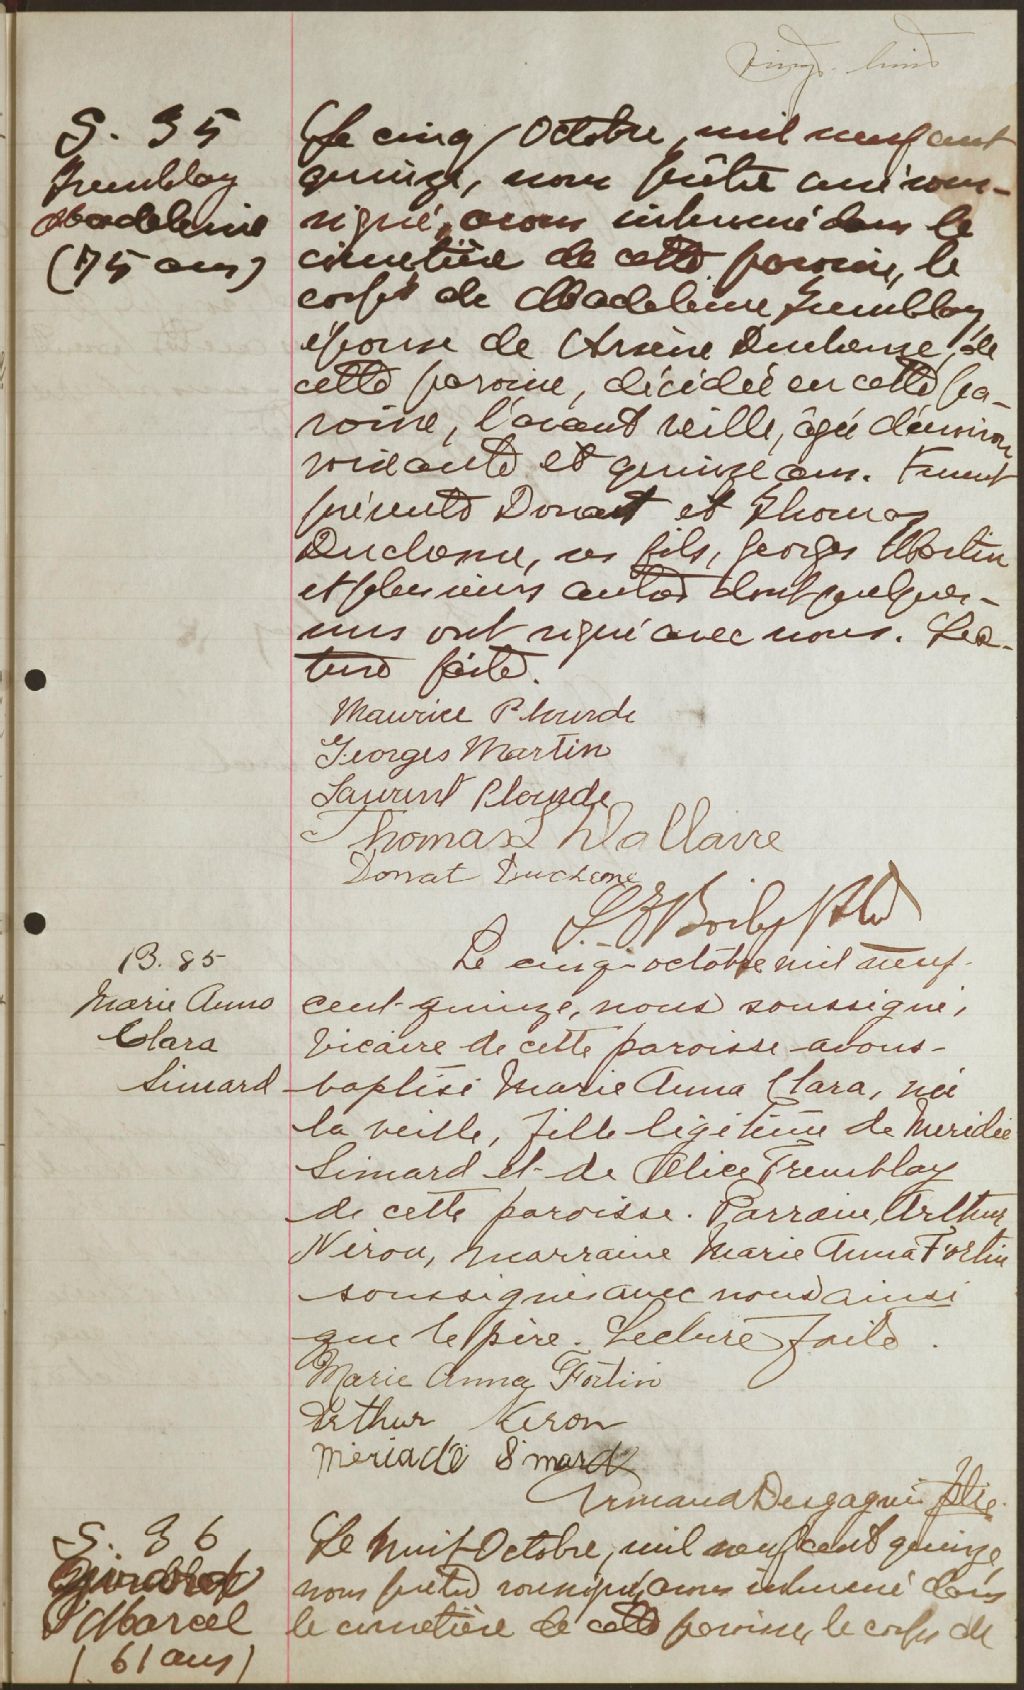 S. 35
Tremblay
Madeleine
(75 ans)
Le cinq Octobre, mil neuf cent
quinze, nous prêtre curé sous-
signé, avons inhumé dans le
cimetière de cette paroisse, le
corps de Madeleine Tremblay
épouse de Arsène Duchesne, de
cette paroisse, décédée en cette pa-
roisse, l'avant veille, âgée d'environ
soixante et quinze ans. Furent
présents Donat et Thomas
Duchesne, ses fils, Georges Martin
et plusieurs autres dont quelques-
uns ont signé avec nous. Lec-
ture faite.
Maurice Plourde
Georges Martin
Laurent Plourde
Thomas Dallaire
Donat Duchesne
Boily Ptre
B. 85
Marie Anna
Clara
Simard
Le cinq octobre mil neuf-
cent-quinze, nous soussigné,
vicaire de cette paroisse avons-
baptisé Marie Anna Clara, née
la veille, fille légitime de Meridée
Simard et de Alice Tremblay
de cette paroisse. Parrain, Arthur
Néron, marraine Marie Anna Fortin
soussignés avec nous ainsi
que le père. Lecture faite.
Marie Anna Fortin
Arthur Neron
Mériade Simard
Armand Desgagné Ptre.
S. 36
Marcel
(61 ans)
Le huit Octobre, mil neuf cent quinze,
nous prêtre soussigné, avons inhumé dans
le cimetière de cette paroisse, le corps de